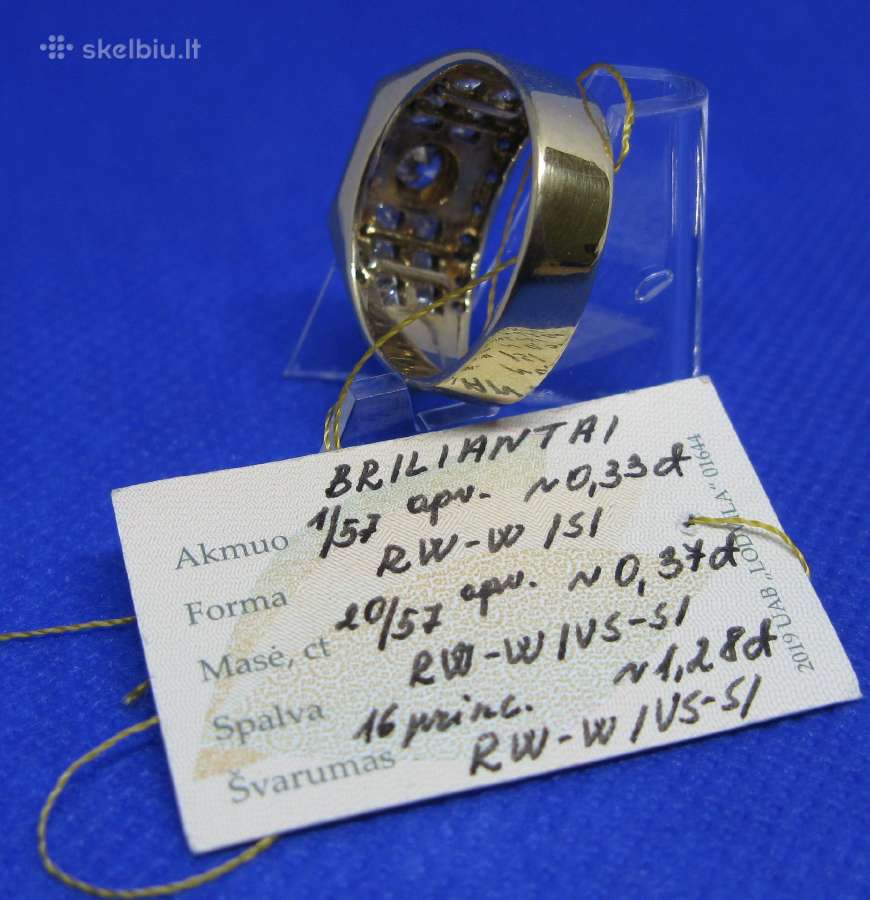 skelbiu.lt
BRILIANTAI
Akmuo 1/57 apv. ~0,33 ct
RW-W/SI
Forma
20/57 apv. ~0,37 ct
Masė, ct
RW-W/VS-SI
Spalva
16 princ. ~1,28 ct
Švarumas RW-W/VS-SI
2019 UAB „LODVILA“ 01644